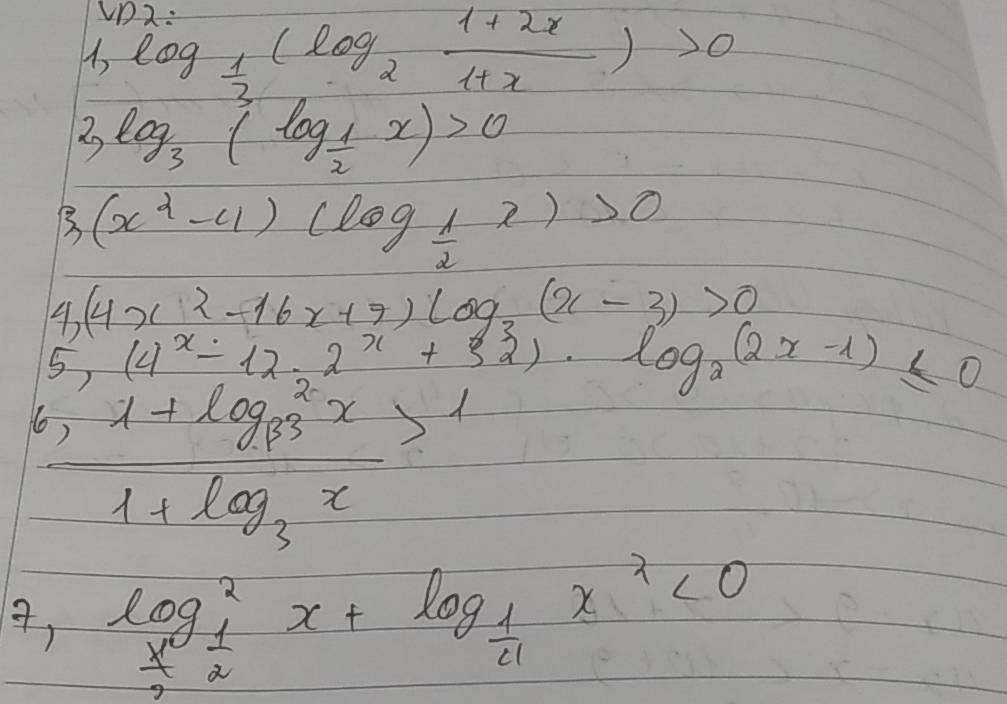 VD2:
1, log_{1/3} (log_2 \frac{1+2x}{1+x}) > 0
2, log_3 (log_{1/2} x) > 0
3, (x² - 4) (log_{1/2} x) > 0
4, (4x² - 16x + 7) log_3 (x - 3) > 0
5, (4^x - 12 . 2^x + 32) . log_2 (2x - 1) ≤ 0
6, \frac{1 + log_3^2 x}{1 + log_3 x} > 1
7, log_{1/2}^2 x + log_{1/4} x² < 0